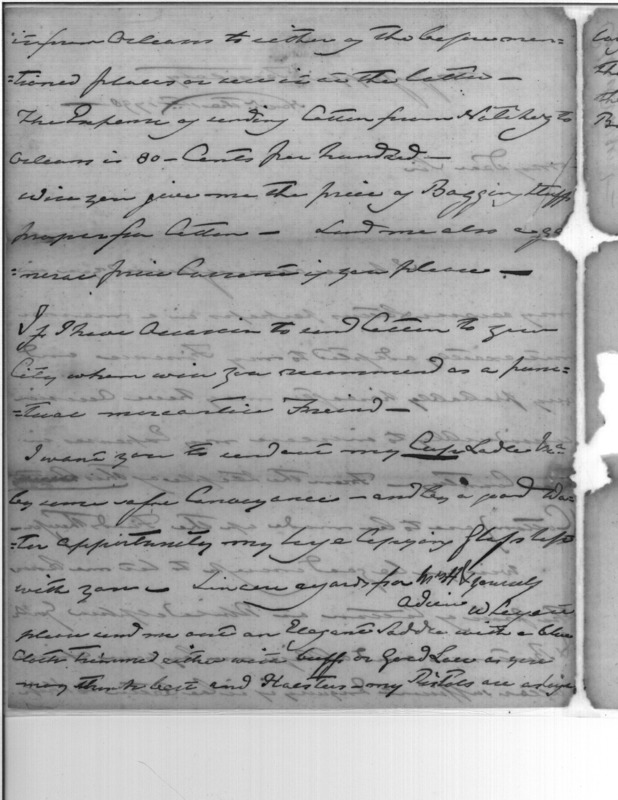 from Orleans to either of the before men=
=tioned places or even in the latter —
The Expense of sending Cotton from Natchez to
Orleans is 80 – Cents per hundred. —
will you give me the price of Bagging Stuff
proper for Cotton — Send me also a ge
=neral price Current if you please —
If I have Occasion to send Cotton to your
City whom will you recommend as a punc=
=tual mercantile Friend —
I want you to send out my Cup Ladle &c
by some safe Conveyance – and by a good Wa=
=ter opportunity my large Copying Glass left
with you – Sincere regards for Mrs H & yourself
Adieu W
please send me out an Elegant Saddle with a blue
Cloth trimmed either with buff or Gold Lace as you
may think best and Holsters – my Pistols are a large
the
the